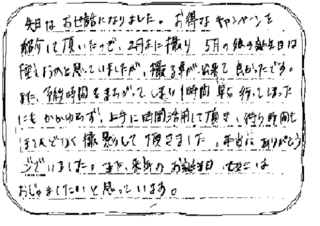 先日は お世話になりました。お得な キャンペーンを
紹介して頂いたので、2月に撮り 5月の娘の誕生日は
使えないかと思っていましたが、撮る事が出来て 良かったです。
また、予約時間をまちがって しまい 1時間 早く 行ってしまった
にも かかわらず、上手に時間活用して頂き、待ち時間も
ほとんどなく 撮影して 頂きました。本当に ありがとう
ございました。また、来年の お誕生日 には
おじゃましたいと思っています。